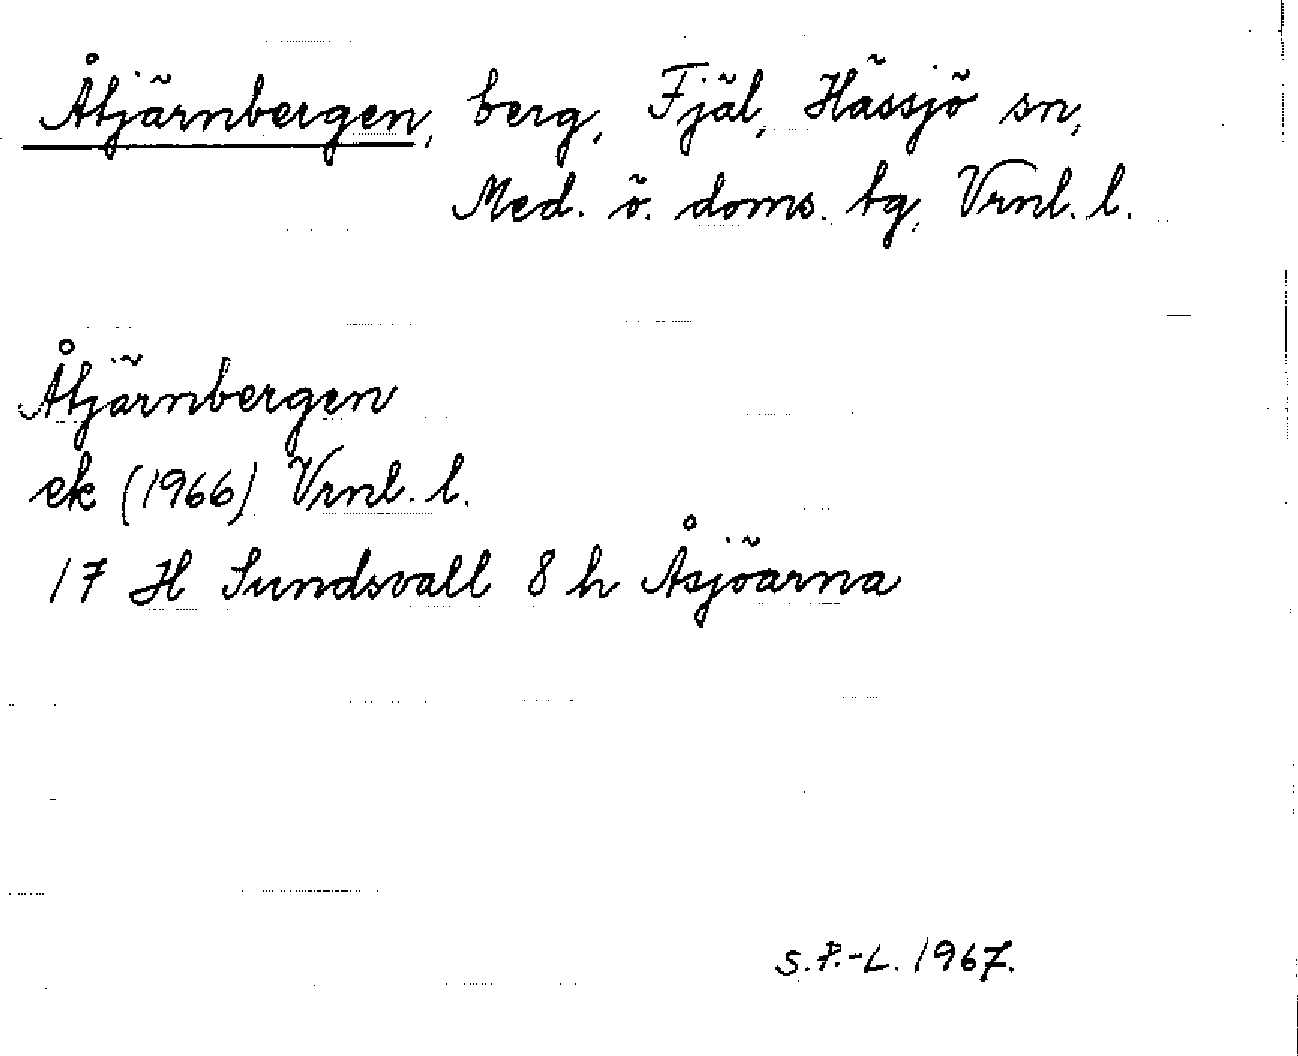 Åtjärnbergen, berg, Fjäl, Hässjö sn,
Med. ö. doms. tg, Vrnl. l.
Åtjärnbergen
ek (1966) Vrnl. l.
17 H Sundsvall 8 h Åsjöarna
S.P.-L. 1967.